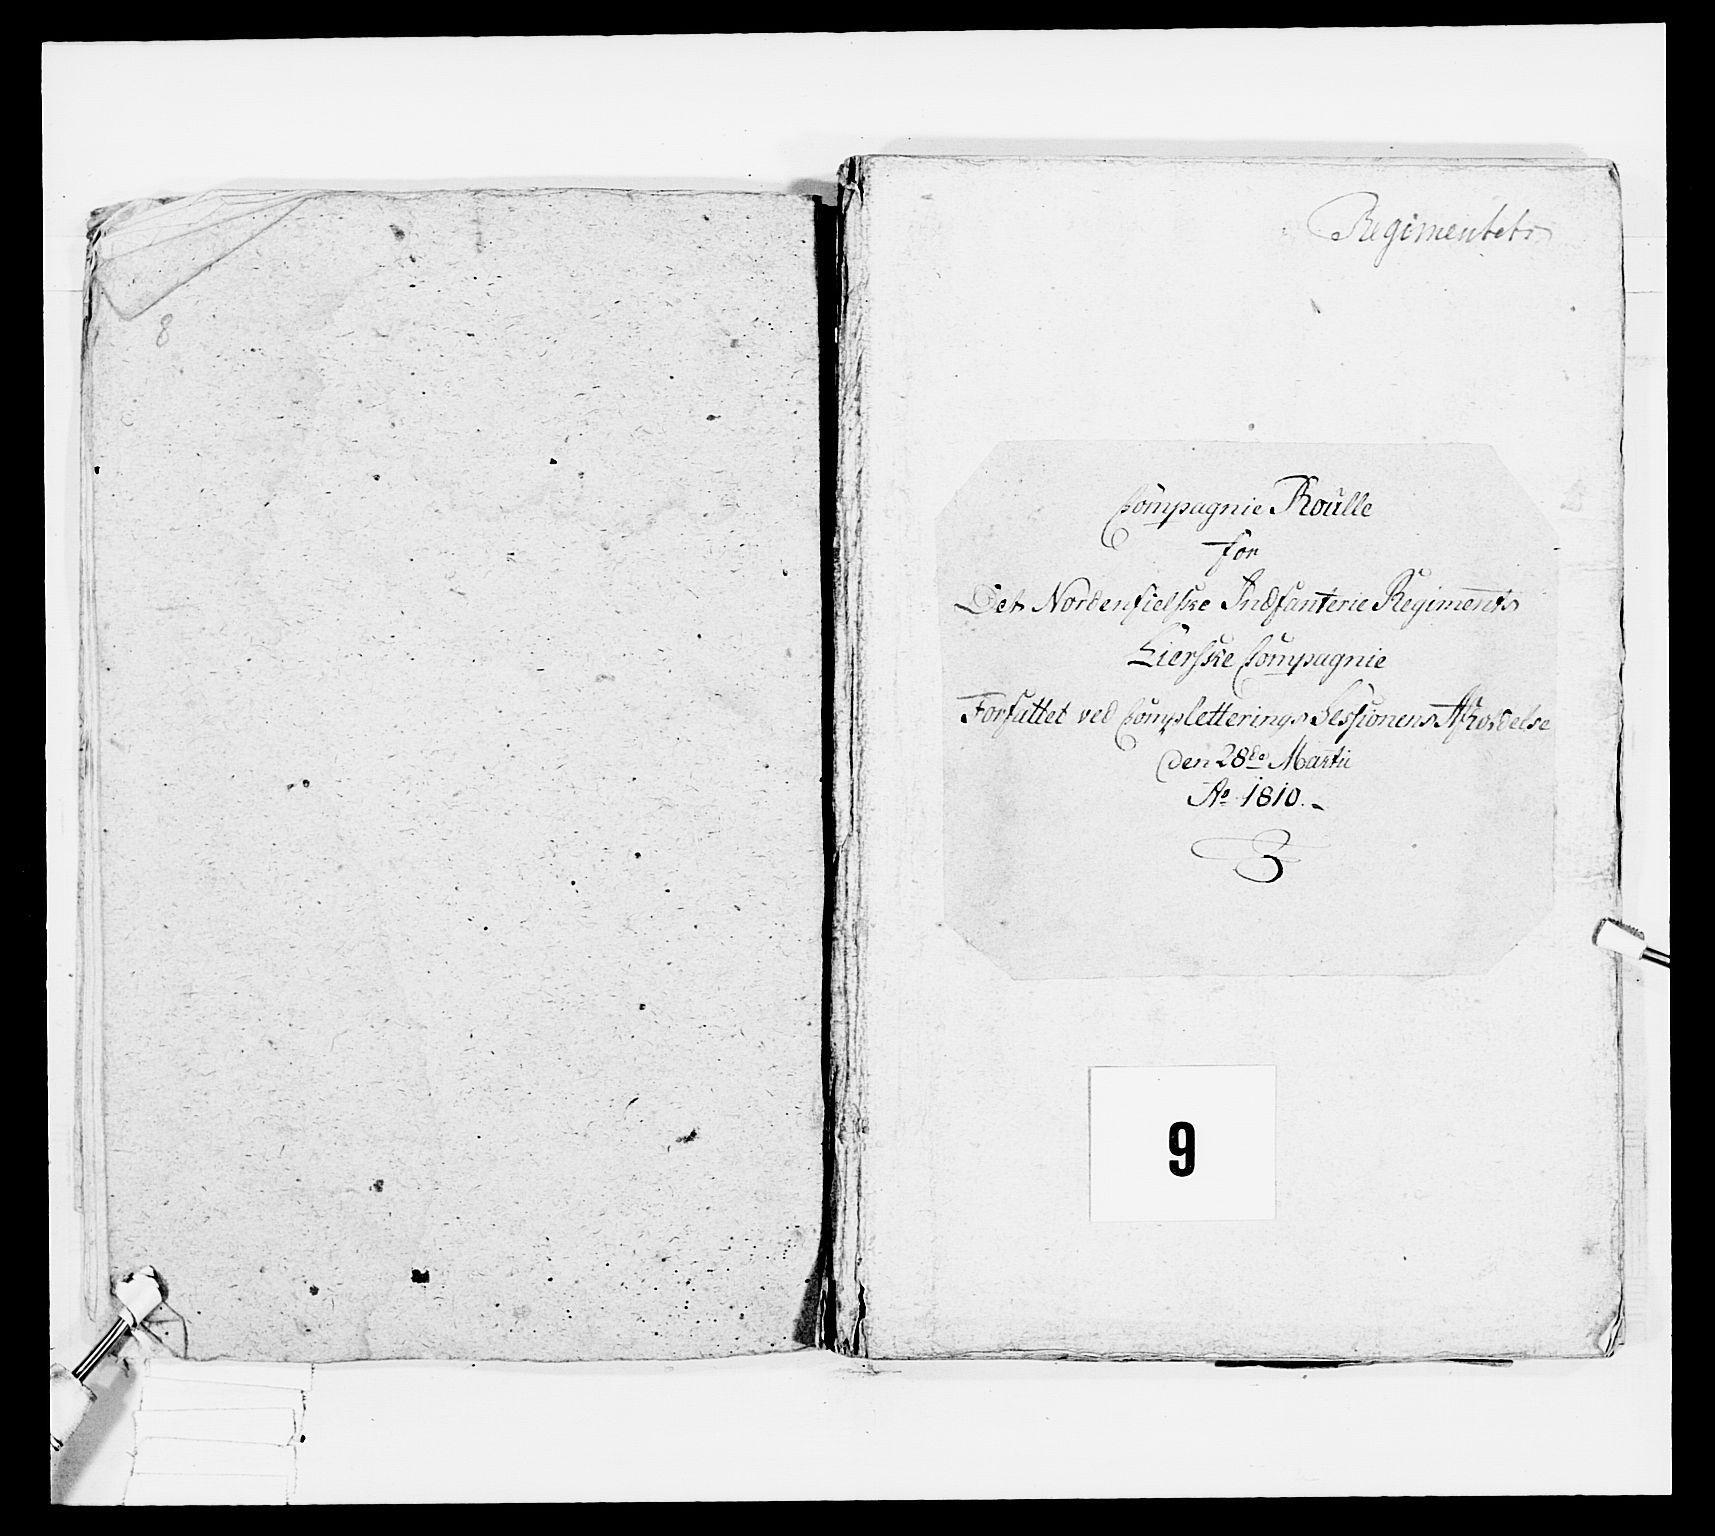 8
Regimentets
Compagnie Roulle
for
Det Nordenfielske Indfanterie Regiments
Lierske Compagnie
Forfattet ved Completterings Sessionens Afholdelse
den 28de Martii
Ao 1810.
9